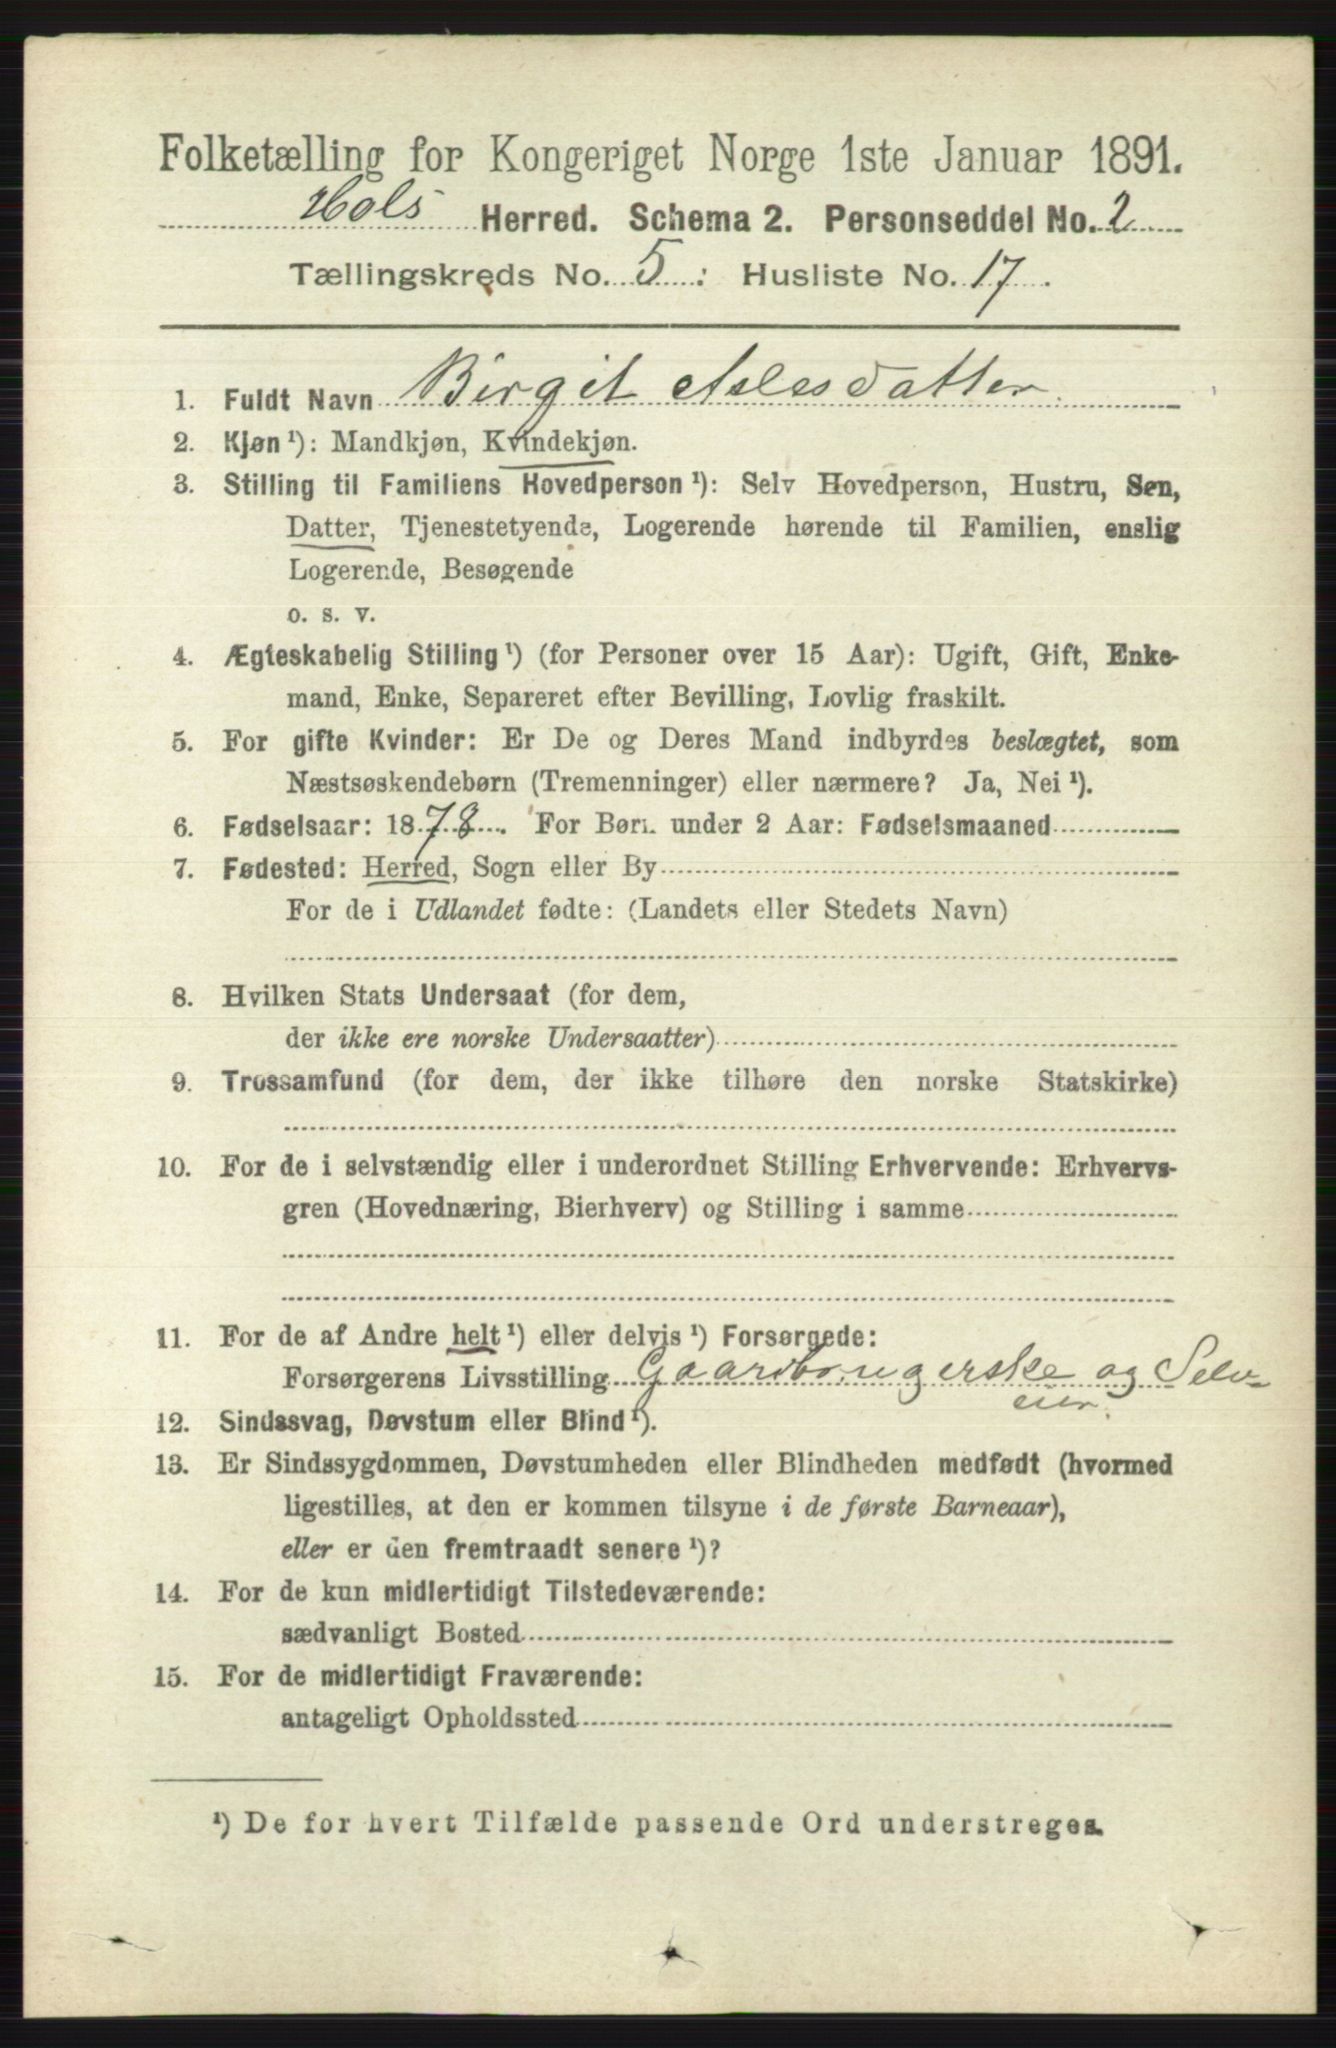 Folketælling for Kongeriget Norge 1ste Januar 1891.
Hols Herred. Schema 2. Personseddel No. 2
Tællingskreds No. 5 : Husliste No. 17.
1. Fuldt Navn Birgit Aslesdatter
2. Kjøn ¹): Mandkjøn, Kvindekjøn.
3. Stilling til Familiens Hovedperson ¹): Selv Hovedperson, Hustru, Søn,
Datter, Tjenestetyende, Logerende hørende til Familien, enslig
Logerende, Besøgende
o. s. v.
4. Ægteskabelig Stilling ¹) (for Personer over 15 Aar): Ugift, Gift, Enke-
mand, Enke, Separeret efter Bevilling, Lovlig fraskilt.
5. For gifte Kvinder: Er De og Deres Mand indbyrdes beslægtet, som
Næstsøskendebørn (Tremenninger) eller nærmere? Ja, Nei ¹).
6. Fødselsaar: 1878. For Børn under 2 Aar: Fødselsmaaned
7. Fødested: Herred, Sogn eller By
For de i Udlandet fødte: (Landets eller Stedets Navn)
8. Hvilken Stats Undersaat (for dem,
der ikke ere norske Undersaatter)
9. Trossamfund (for dem, der ikke tilhøre den norske Statskirke)
10. For de i selvstændig eller i underordnet Stilling Erhvervende: Erhvervs-
gren (Hovednæring, Bierhverv) og Stilling i samme
11. For de af Andre helt ¹) eller delvis ¹) Forsørgede:
Forsørgerens Livsstilling Gaardbrugerske og Selv-
eier.
12. Sindssvag, Døvstum eller Blind ¹).
13. Er Sindssygdommen, Døvstumheden eller Blindheden medfødt (hvormed
ligestilles, at den er kommen tilsyne i de første Barneaar),
eller er den fremtraadt senere ¹)?
14. For de kun midlertidigt Tilstedeværende:
sædvanligt Bosted
15. For de midlertidigt Fraværende:
antageligt Opholdssted
¹) De for hvert Tilfælde passende Ord understreges.